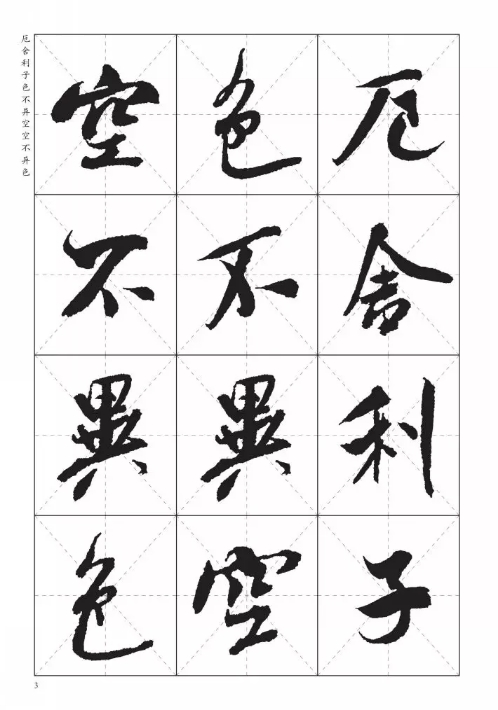 厄舍利子
色不異空
空不異色
厄舍利子色不异空空不异色
3